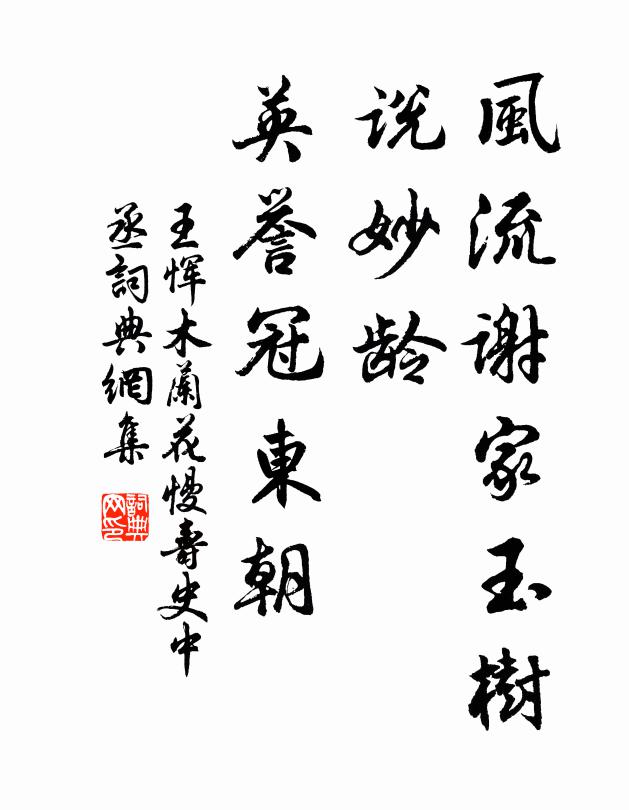 風流謝家玉樹
説妙龄
英誉冠東朝
王恽木蘭花慢壽史中
丞詞典網集
詞典
网印